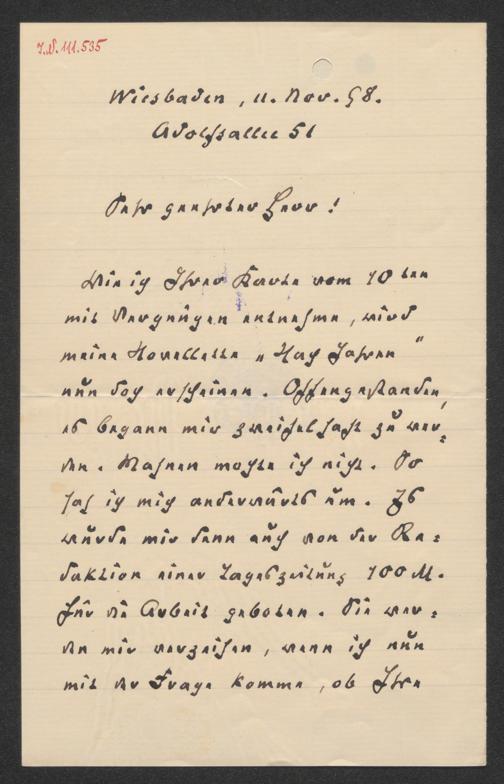 J.N. 111.535
Wiesbaden, 11. Nov. 98.
Adolfsallee 51
Sehr geehrter Herr!
Wie ich Ihrer Karte vom 10ten
mit Vergnügen entnehme, wird
meine Novellette „Nach Jahren"
nun doch erscheinen. Offengestanden,
es begann mir zweifelhaft zu wer-
den. Mahnen mochte ich nicht. So
sah ich mich anderwärts um. Es
wurde mir denn auch von der Re-
daktion einer Tageszeitung 100 M.
für die Arbeit geboten. Sie wer-
den mir verzeihen, wenn ich nun
mit der Frage komme, ob Ihre